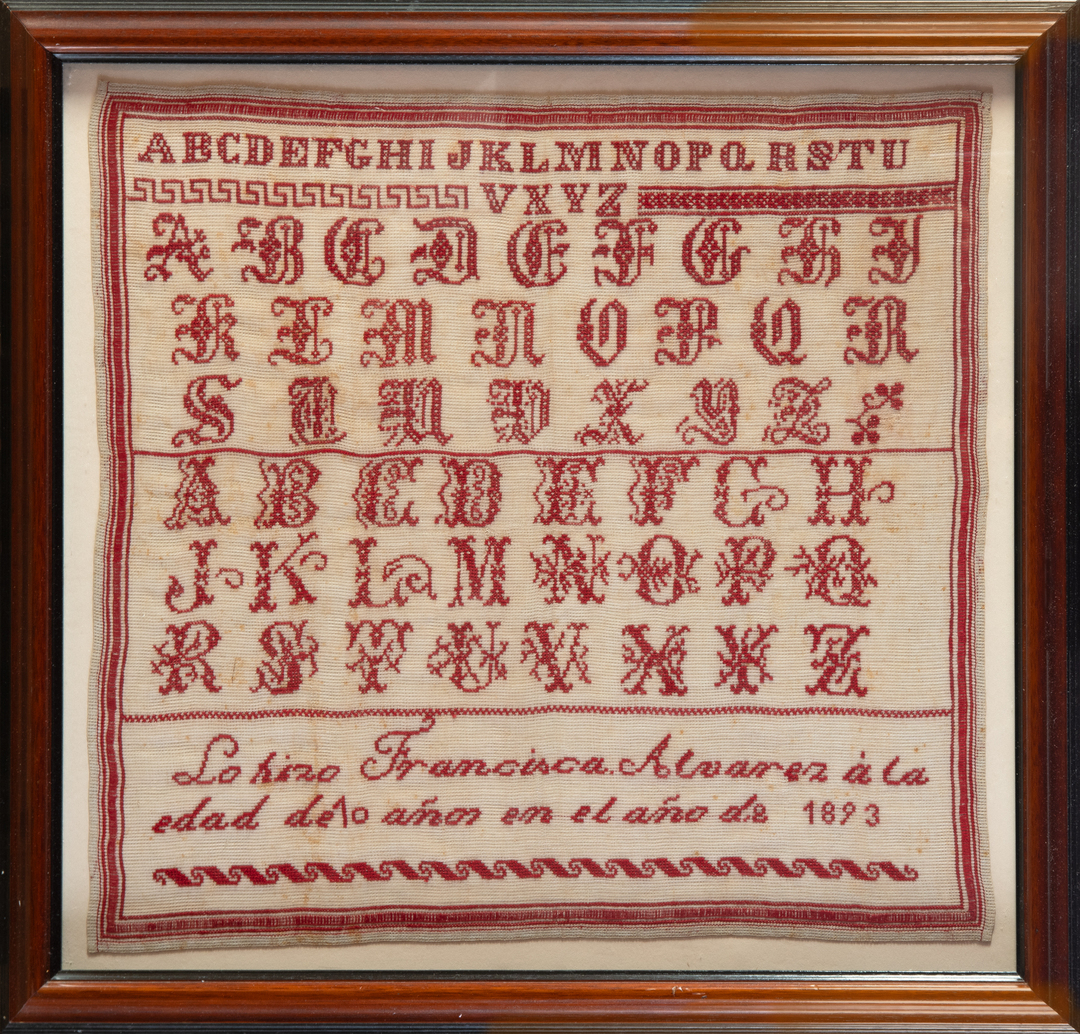 ABCDEFGHIJKLMNOPQRSTU
VXYZ
ABCDEFGHJ
KLMNOPQR
STUVXYZ
ABCDEFGH
JKLMNOPQ
RSTUVXYZ
Lo hizo Francisca Alvarez à la
edad dé 10 años en el año de 1893